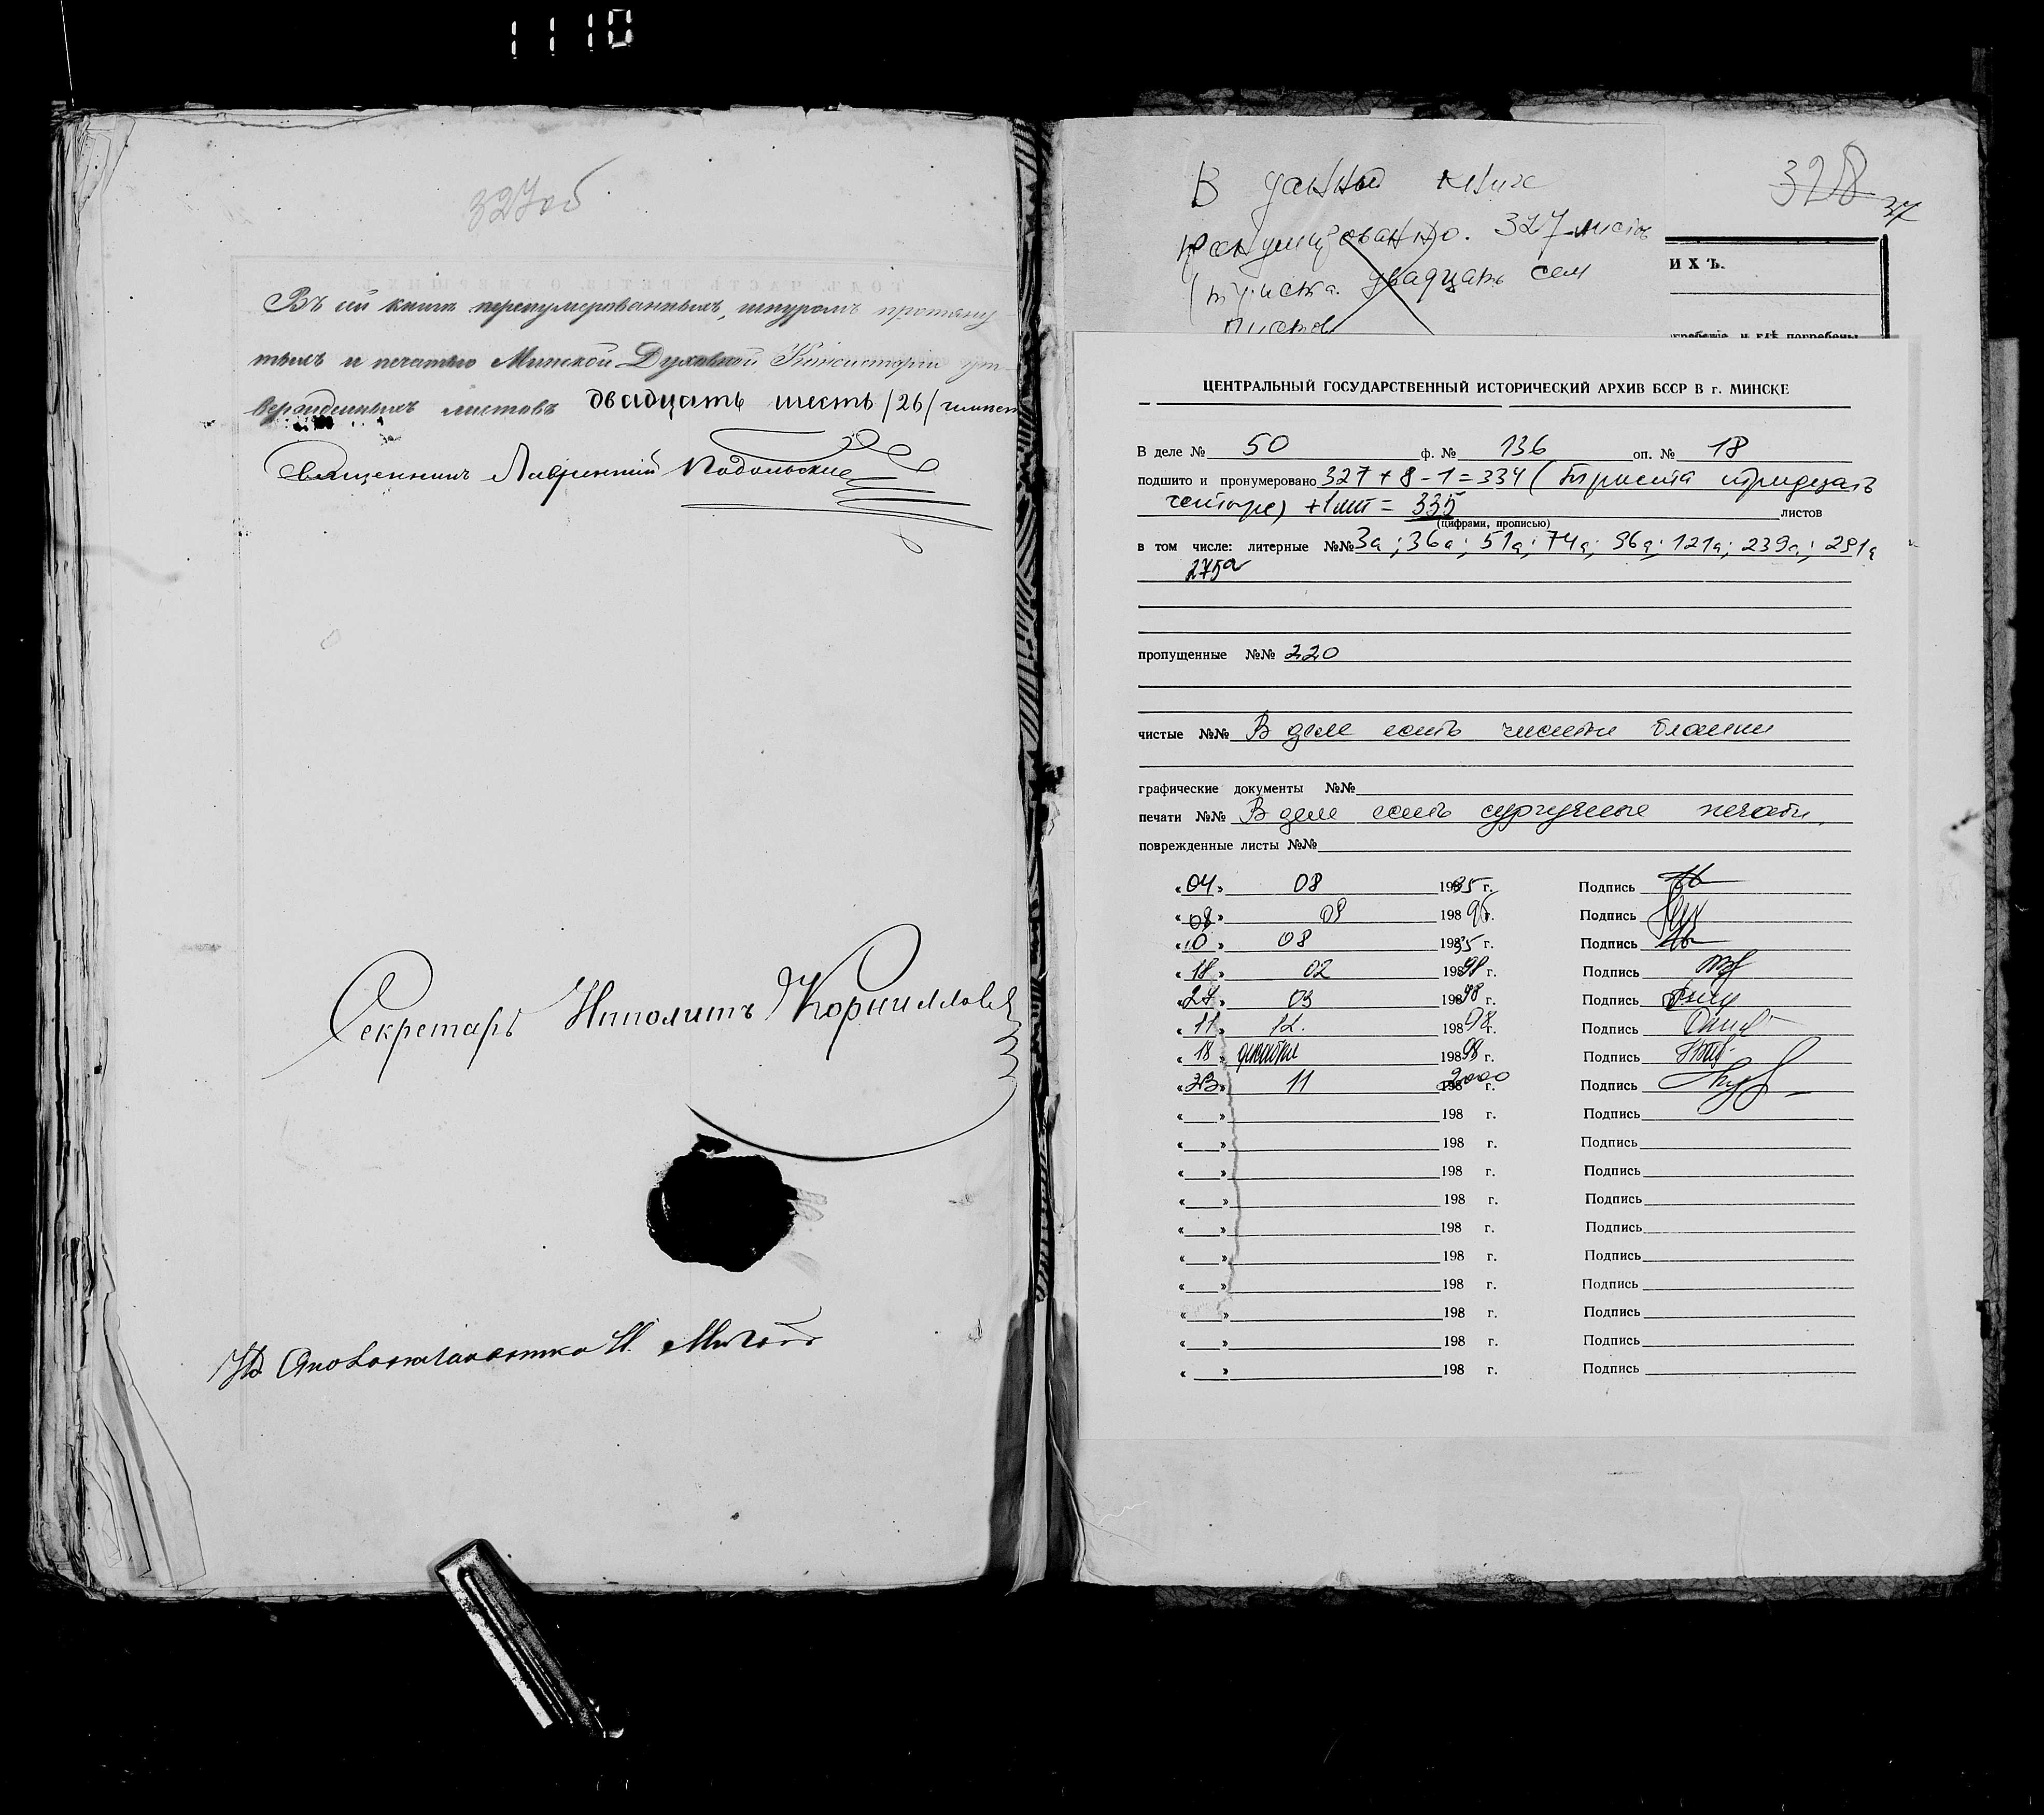 1110
327об
Въ сей книгѣ перенумерованныхъ, шнуромъ протяну
тыхъ и печатью Минской Духовной Консисторіи ут-
вержденныхъ листовъ двадцать шесть /26/
Священникъ Лаврентій Подольскій
Секретарь Ипполитъ Корниллов
328
37
В данной книге
пронумеровано. 327 листов
(триста двадцать сем
листов
ИХЪ.
гребеніе и гдѣ погребены
ЦЕНТРАЛЬНЫЙ ГОСУДАРСТВЕННЫЙ ИСТОРИЧЕСКИЙ АРХИВ БССР В г. МИНСКЕ
В деле № 50 ф. № 136 оп. № 18
подшито и пронумеровано 327 + 8 - 1 = 334 (Триста тридцать
четыре) + 1 лит = 335 листов
(цифрами, прописью)
в том числе: литерные №№ 3а; 36а; 51а; 74а; 96а; 121а; 239а; 291а
275а
пропущенные №№ 220
чистые №№ В деле есть чистые бланки
графические документы №№
печати №№ В деле есть сургучные печати.
поврежденные листы №№
«04» 08 1995 г. Подпись
«08» 09 198 95 г. Подпись
«10» 08 1995 г. Подпись
«18» 02 198 98 г. Подпись
«27» 03 198 98 г. Подпись
«11» 12. 198 98 г. Подпись
«18» декабря 198 98 г. Подпись
«23» 11 198 2000 г. Подпись
« » 198 г. Подпись
« » 198 г. Подпись
« » 198 г. Подпись
« » 198 г. Подпись
« » 198 г. Подпись
« » 198 г. Подпись
« » 198 г. Подпись
« » 198 г. Подпись
« » 198 г. Подпись
« » 198 г. Подпись